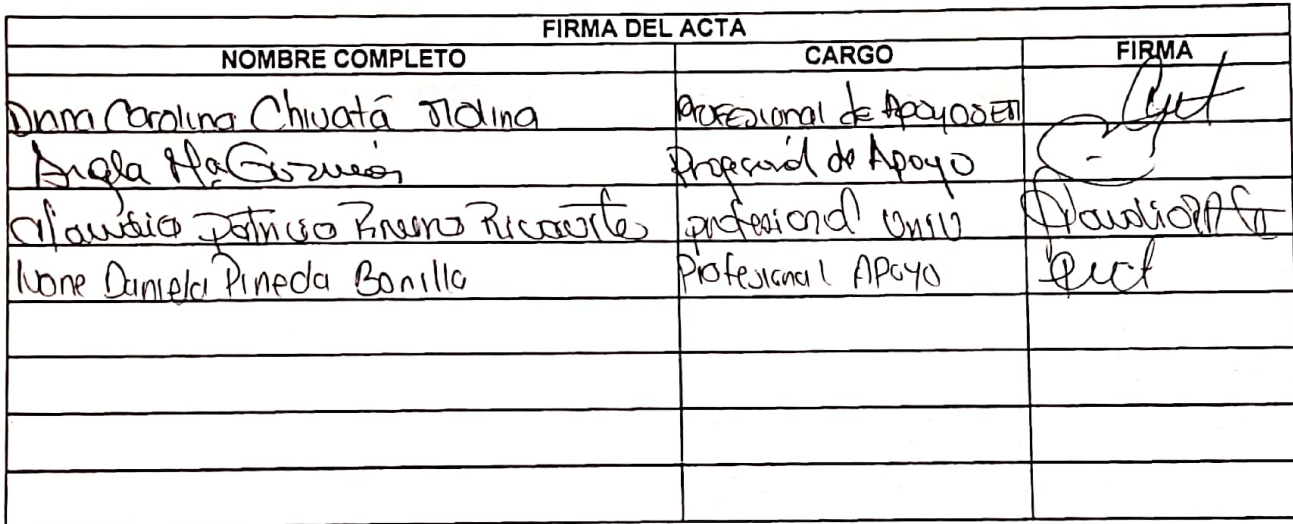 FIRMA DEL ACTA
NOMBRE COMPLETO CARGO FIRMA
Diana Carolina Chivatá Molina Profesional de Apoyo
Angla Ma Guzmán Profesional de Apoyo
Claudia Patricia Ricaurte profesional Univ Claudia
Ivone Daniela Pineda Bonilla Profesional APoyo